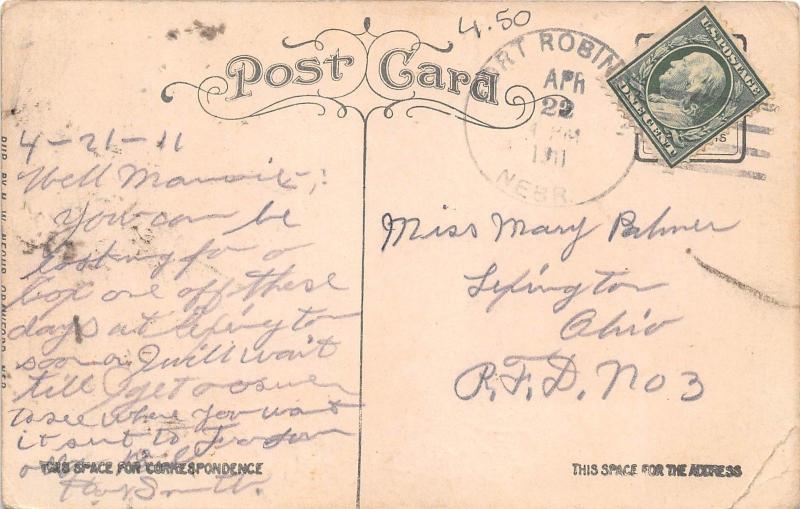 4.50
Post Card
RT ROBIN
APR
22
PM
1911
NEBR.
U.S. POSTAGE
ONE CENT
4-21-11
Well
You can be
looking for a
box one off these
days at Lexington
soon or I will wait
till I get
to see where you want
it sent to
Smith.
Miss Mary Palmer
Lexington
Ohio
R.F.D. No 3
THIS SPACE FOR CORRESPONDENCE
THIS SPACE FOR THE ADDRESS
PUB. BY H. W. NEGUS, CRAWFORD, NEB.